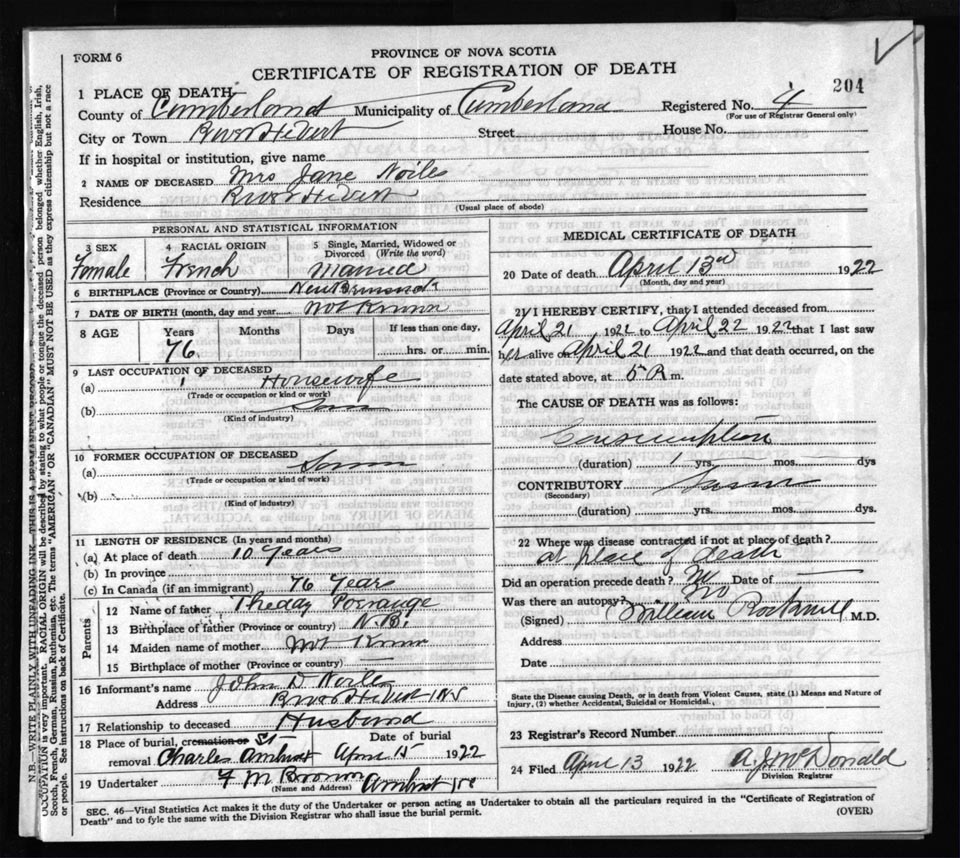 FORM 6
PROVINCE OF NOVA SCOTIA
CERTIFICATE OF REGISTRATION OF DEATH
204
1 PLACE OF DEATH
County of Cumberland Municipality of Cumberland Registered No. 4
(For use of Registrar General only)
City or Town River Hebert Street House No.
If in hospital or institution, give name
2 NAME OF DECEASED Mrs Jane Noiles
Residence River Hebert
(Usual place of abode)
PERSONAL AND STATISTICAL INFORMATION
3 SEX Female
4 RACIAL ORIGIN French
5 Single, Married, Widowed or Divorced (Write the word) Married
6 BIRTHPLACE (Province or Country) New Brunswick
7 DATE OF BIRTH (month, day and year) not Known
8 AGE Years 76 Months Days If less than one day, hrs. or min.
9 LAST OCCUPATION OF DECEASED
(a) Housewife
(Trade or occupation or kind or work)
(b)
(Kind of industry)
10 FORMER OCCUPATION OF DECEASED
(a)
(Trade or occupation or kind of work)
(b)
(Kind of industry)
11 LENGTH OF RESIDENCE (In years and months)
(a) At place of death 10 years
(b) In province
(c) In Canada (if an immigrant) 76 years
Parents
12 Name of father
13 Birthplace of father (Province or country) N.B.
14 Maiden name of mother not Known
15 Birthplace of mother (Province or country)
16 Informant's name John D Noiles
Address River Hebert NS
17 Relationship to deceased Husband
18 Place of burial, cremation or St
removal Charles Amherst Date of burial April 15 1922
19 Undertaker F M Brown Amherst
(Name and Address)
MEDICAL CERTIFICATE OF DEATH
20 Date of death April 13 1922
(Month, day and year)
21 I HEREBY CERTIFY, that I attended deceased from
April 21 1922 to April 22 1922 that I last saw
her alive on April 21 1922 and that death occurred, on the
date stated above, at 5 m.
The CAUSE OF DEATH was as follows:
Consumption
(duration) 1 yrs. mos. dys
CONTRIBUTORY
(Secondary)
(duration) yrs. mos. dys.
22 Where was disease contracted if not at place of death?
at place of death
Did an operation precede death? No Date of
Was there an autopsy? No
(Signed) William Rockwell M.D.
Address
Date
State the Disease causing Death, or in death from Violent Causes, state (1) Means and Nature of
Injury, (2) whether Accidental, Suicidal or Homicidal.
23 Registrar's Record Number
24 Filed April 13 1922 A.J. McDonald
Division Registrar
SEC. 46—Vital Statistics Act makes it the duty of the Undertaker or person acting as Undertaker to obtain all the particulars required in the "Certificate of Registration of
Death" and to fyle the same with the Division Registrar who shall issue the burial permit.
(OVER)
N.B.—WRITE PLAINLY WITH UNFADING INK—THIS IS A PERMANENT RECORD.
OCCUPATION is very important. RACIAL ORIGIN will be described by stating to what people or tongue the deceased person belonged whether English, Irish,
Scotch, French, German, Russian, Ruthenian, etc. The terms "AMERICAN" OR "CANADIAN" MUST NOT BE USED as they express citizenship but not a race
or people. See instructions on back of Certificate.